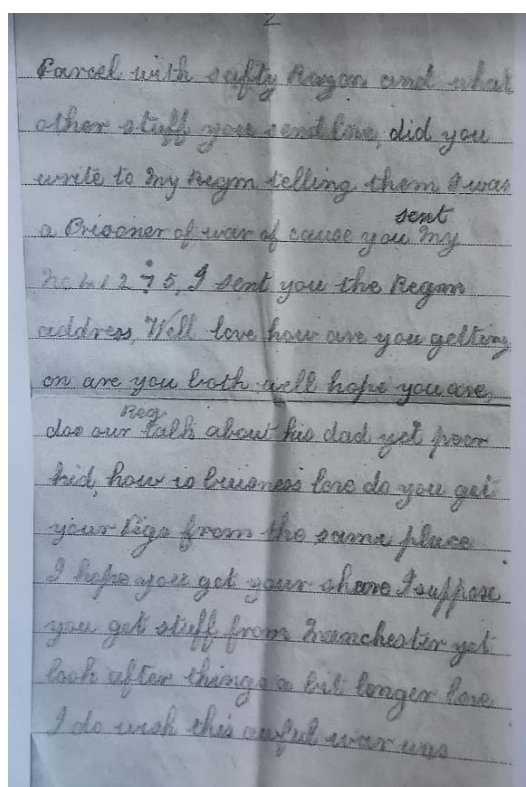 2
Parcel with safty Razon and what
other stuff you send love, did you
write to my Regm telling them I was
sent
a Prisoner of war of cause you my
1275, I sent you the Regm
address, Well love how are you getting
on are you both well hope you are,
Reg
dos our talk about his dad yet poor
kid, how is buisness love do you get
your Pigs from the same place
I hope you got your share I suppose
you get stuff from Manchester yet
look after things a bit longer love
I do wish this awful war was